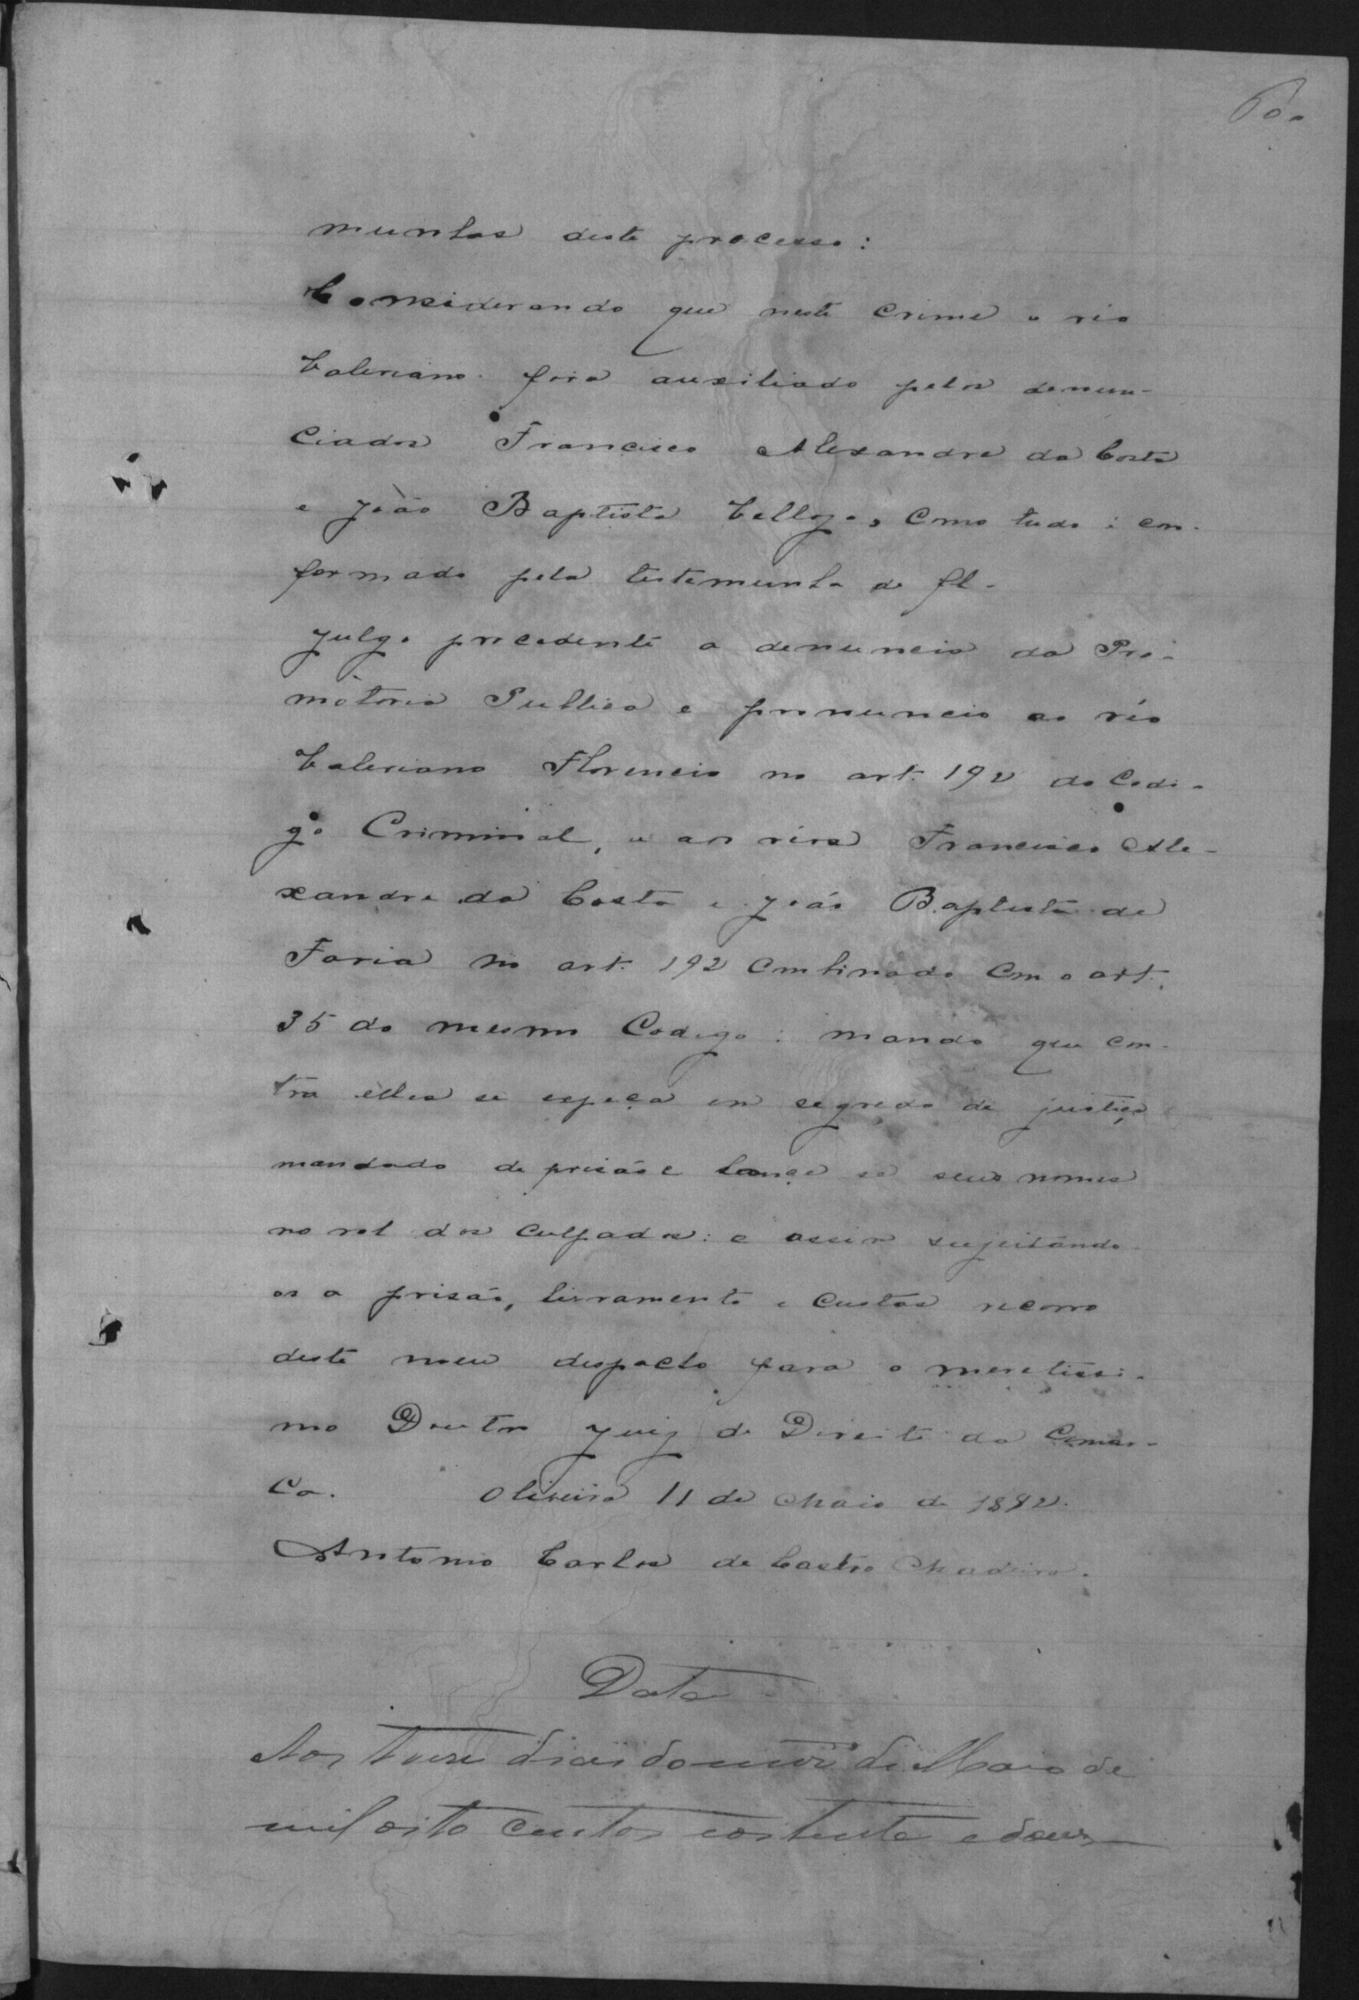 60.
munhas deste processo:
Considerando que neste crime o réo
Valeriano fora auxiliado pelos denun-
ciados Francisco Alexandre da Costa
e João Baptista como tudo é con-
formado pela testemunha de fl-
julgo procedente a denuncia da Pro-
motoria Publica e pronuncio ao réo
Valeriano Florencio no art. 192 do Codi-
go Criminal, e aos réos Francisco Ale-
xandre da Costa e João Baptista de
Faria no art. 192 combinado com o art.
35 do mesmo Codigo: mando que con-
tra elles se expeça em segredo de justiça
mandado de prisão e lançe se seus nomes
no rol dos culpados: e assim sujeitando
os a prisão, livramento e custas recorro
deste meu despacho para o meretissi-
mo Doutor Juiz de Direito da Comar-
ca. Oliveira 11 de Maio de 1882.
Antonio Carlos de Castro Madeira.
Data
Aos treze dias do mez de Maio de
mil oito centos e oitenta e dous